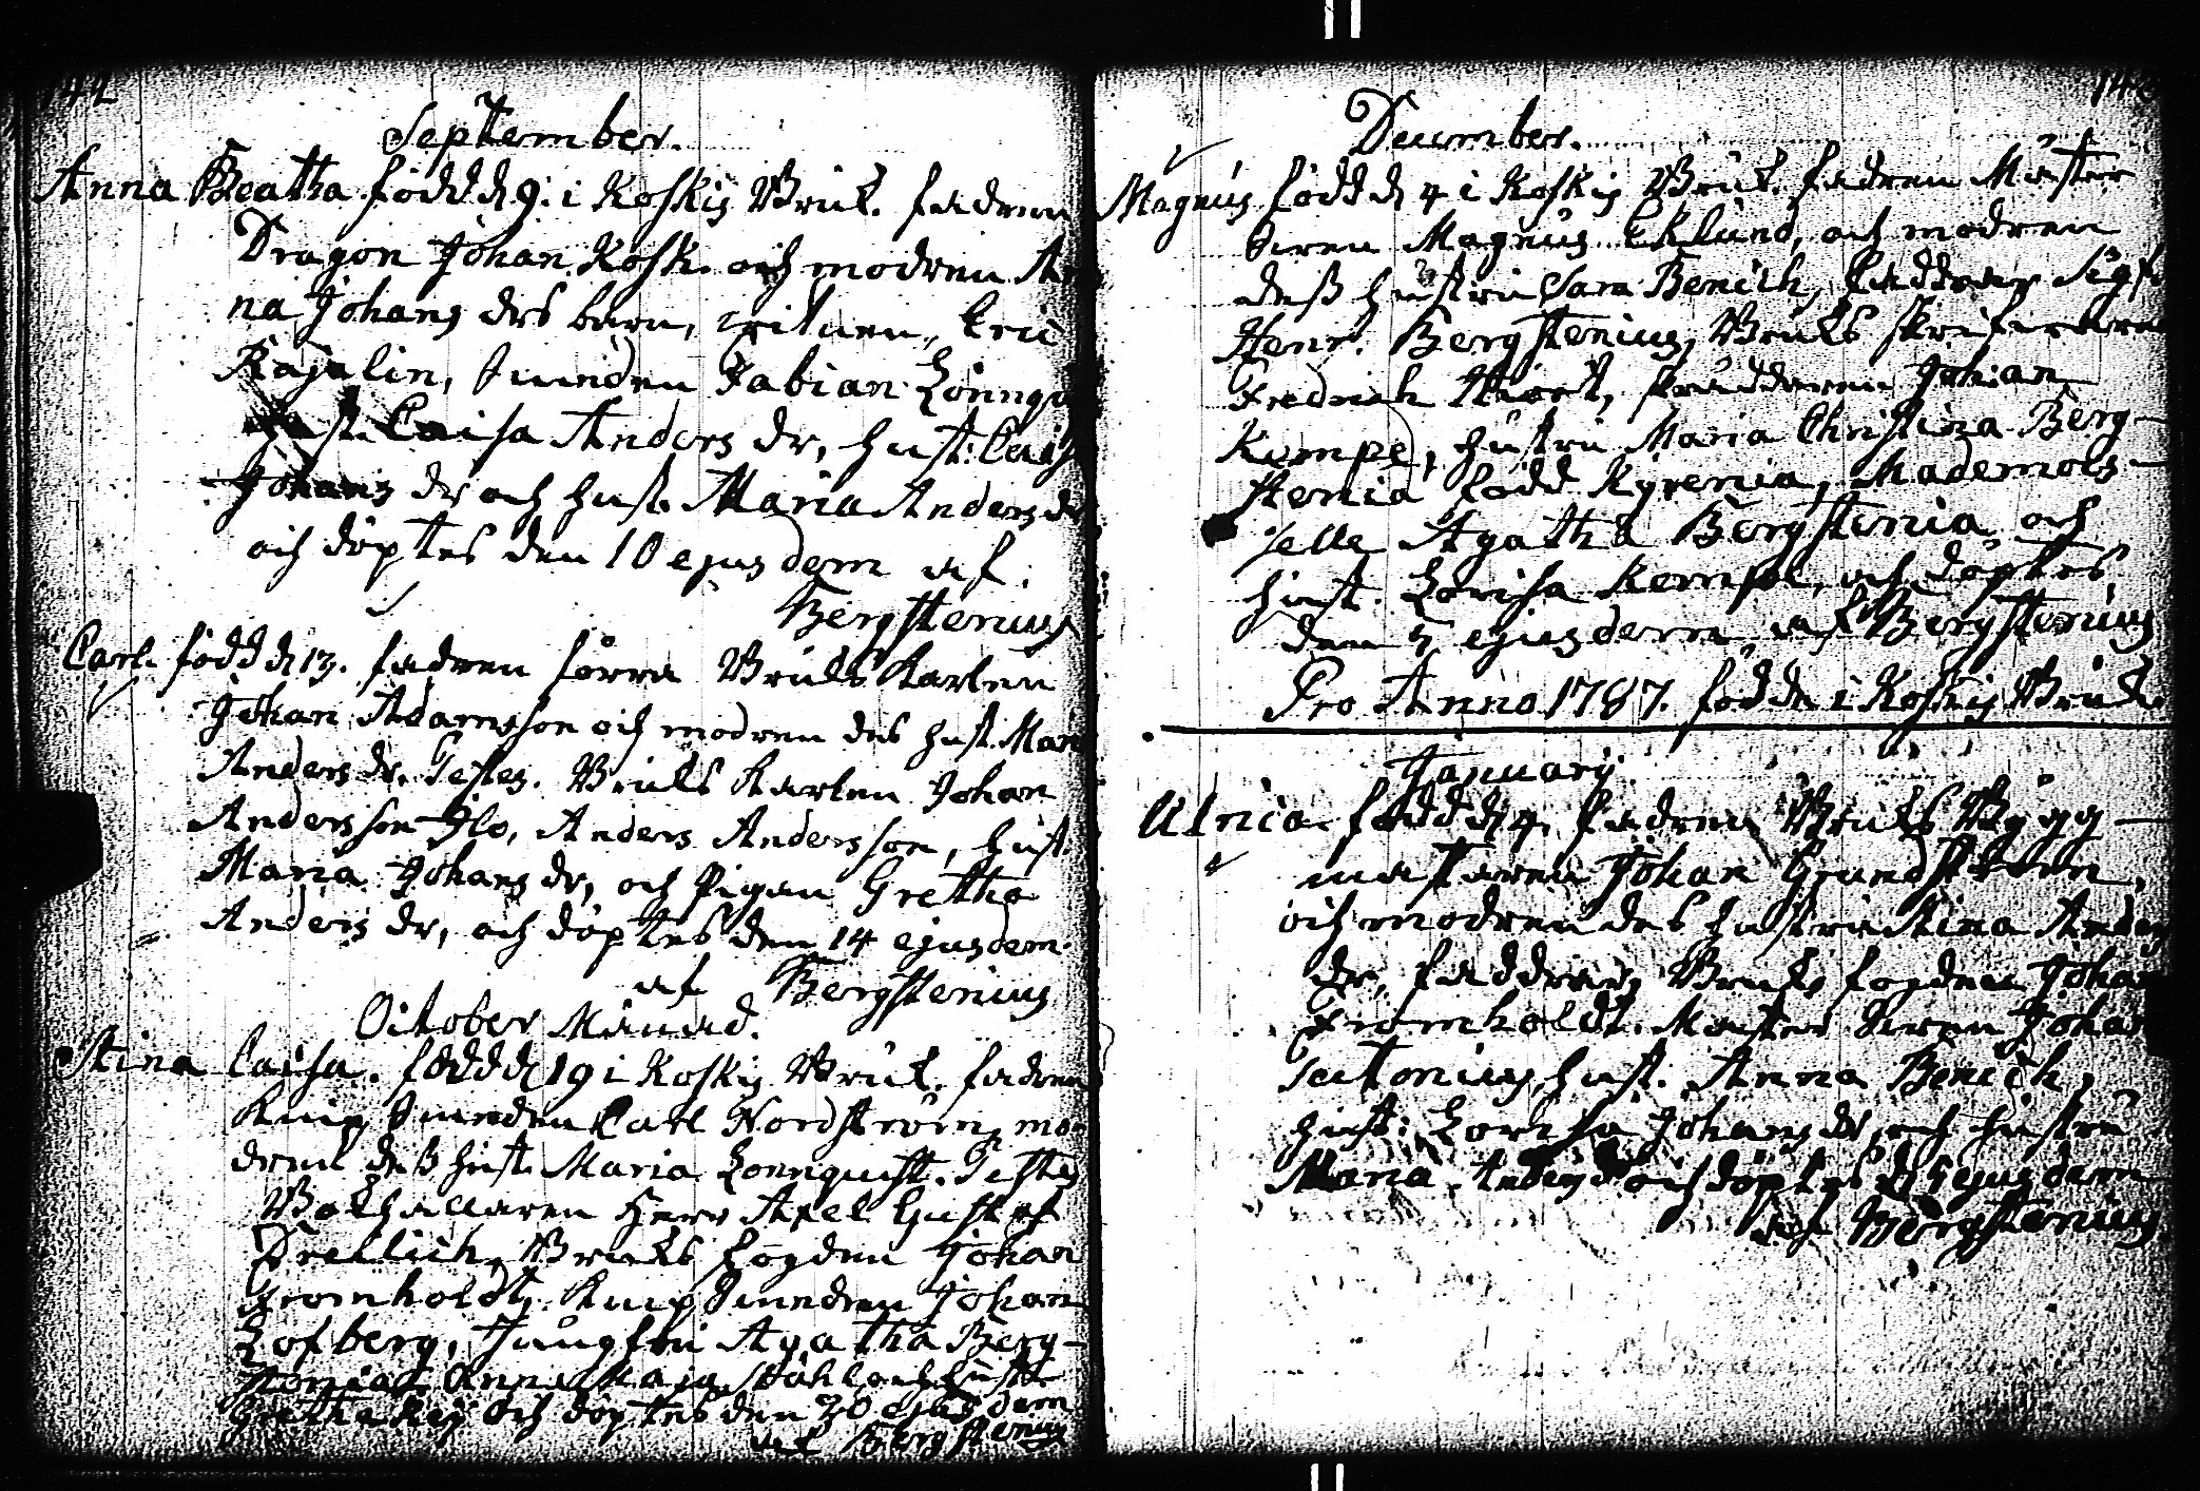 142
September.
Anna Beatha född d 9. i Koskis Bruk. fadren
Dragon Johan Kosk. och modren An
na Johans drs barn, vitnen, Eric
Kajalin, Smeden Fabian Lönnqv
hust. Caisa Anders dr, hust: Cais
Johans dr och hust. Maria Anders dr
och döptes den 10 ejusdem af.
Bergstenius
Carl. född d 13. fadren förra Bruks Karlen
Johan Adamsson och modren des hust. Mari
Anders dr. Testes. Bruks Karlen Johan
Andersson Ilo, Anders Andersson, hust.
Maria Johans dr, och Pigan Gretha
Anders dr, och döptes den 14 ejusdem.
af Bergstenius
October Månad.
Stina Caisa. född d 19 i Koskis Bruk. fadren
Knip Smeden Carl Nordström, mo-
dren dess hust. Maria Lönnquist. Testes
Bokhållaren Herr Axel Gustaf
Drellich, Bruks fogden Johan
Fromholdt, Knip Smeden Johan
Lofberg, Jungfru Agatha Berg-
stenia, Anna Maja Ståhl och hustr
Gretha Kej och döptes den 20 ejusdem
af Bergstenius
December.
Magnus född d 4 i Koskis Bruk. fadren Mäster
Magnus Eklund, och modren
dess hustru Sara Benich, faddrar
Henr. Bergstenius, Bruks skrifvaren
Fredrich Hiort, Johan
Kempe, hustru Maria Christina Berg-
stenia född Kyrenia, Mademois-
selle Agatha Bergstenia och
hust. Lovisa Kempe, och döptes
den 5 ejusdem af Bergstenius
Pro Anno 1787. födde i Koskis Bruk.
Januarij.
Ulrica. född d 4. fadren Bruks Bygg-
mästaren Johan Grundström,
och modren des hustru Stina Anders
dr, faddrar, Bruks fogden Johan
Fromholdt. Johan
hust. Anna Benich,
hust: Lovisa Johans dr, och hustru
Maria Anders dr och döptes d 5 ejusdem
af Bergstenius